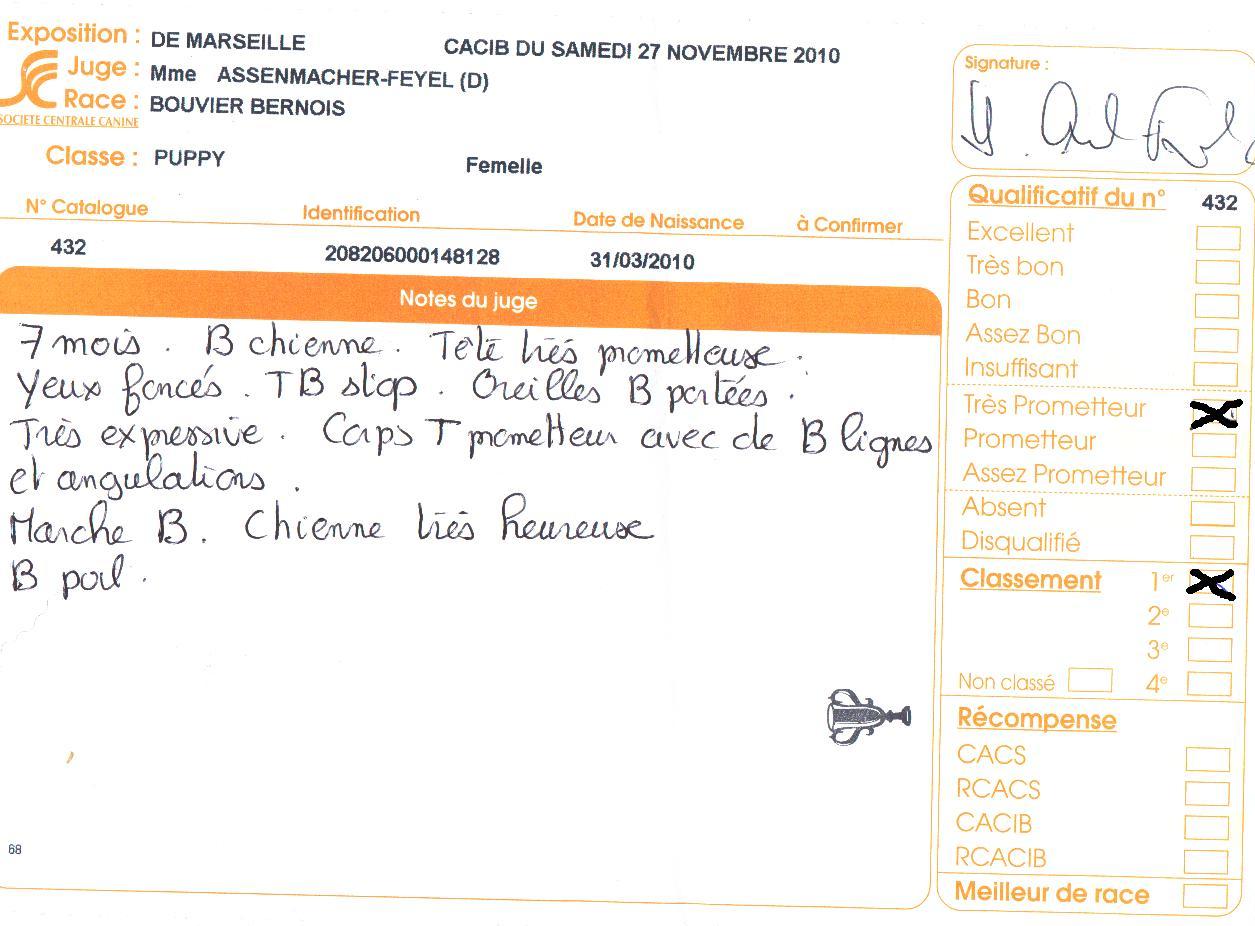 Exposition : DE MARSEILLE CACIB DU SAMEDI 27 NOVEMBRE 2010
Juge : Mme ASSENMACHER-FEYEL (D)
Race : BOUVIER BERNOIS
SOCIETE CENTRALE CANINE
Classe : PUPPY Femelle
N° Catalogue Identification Date de Naissance à Confirmer
432 208206000148128 31/03/2010
Notes du juge
7 mois . B chienne . Tête très prometteuse .
Yeux foncés . TB stop . Oreilles B portées .
Très expressive . Corps T prometteur avec de B lignes
et angulations .
Marche B . Chienne très heureuse
B poil .
68
Signature :
Qualificatif du n° 432
Excellent
Très bon
Bon
Assez Bon
Insuffisant
Très Prometteur
Prometteur
Assez Prometteur
Absent
Disqualifié
Classement 1er
2e
3e
Non classé 4e
Récompense
CACS
RCACS
CACIB
RCACIB
Meilleur de race